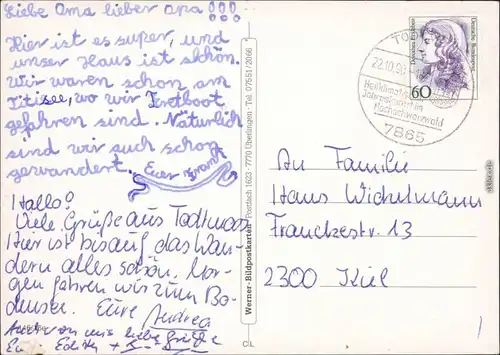 Liebe Oma lieber Opa!!!
Hier ist es super, und
unser Haus ist schön.
Wir waren schon am
Titisee, wo wir Tretboot
gefahren sind. Natürlich
sind wir auch schon
gewandert. Euer Frank
Hallo!
Viele Grüße aus Todtmoos
Hier ist bis auf das Wan-
dern alles schön. Mor-
gen fahren wir zum Bo-
densee. Eure Andrea
Auch von uns liebe Grüße
Edith +
Werner-Bildpostkarten · Postfach 1623 · 7770 Überlingen · Tel. 07551/2066
Deutsche Bundespost
60
22.10.90
Heilklimatischer
Jahreskurort im
Hochschwarzwald
7865
An Familie
Hans Wichelmann
Franckestr. 13
2300 Kiel